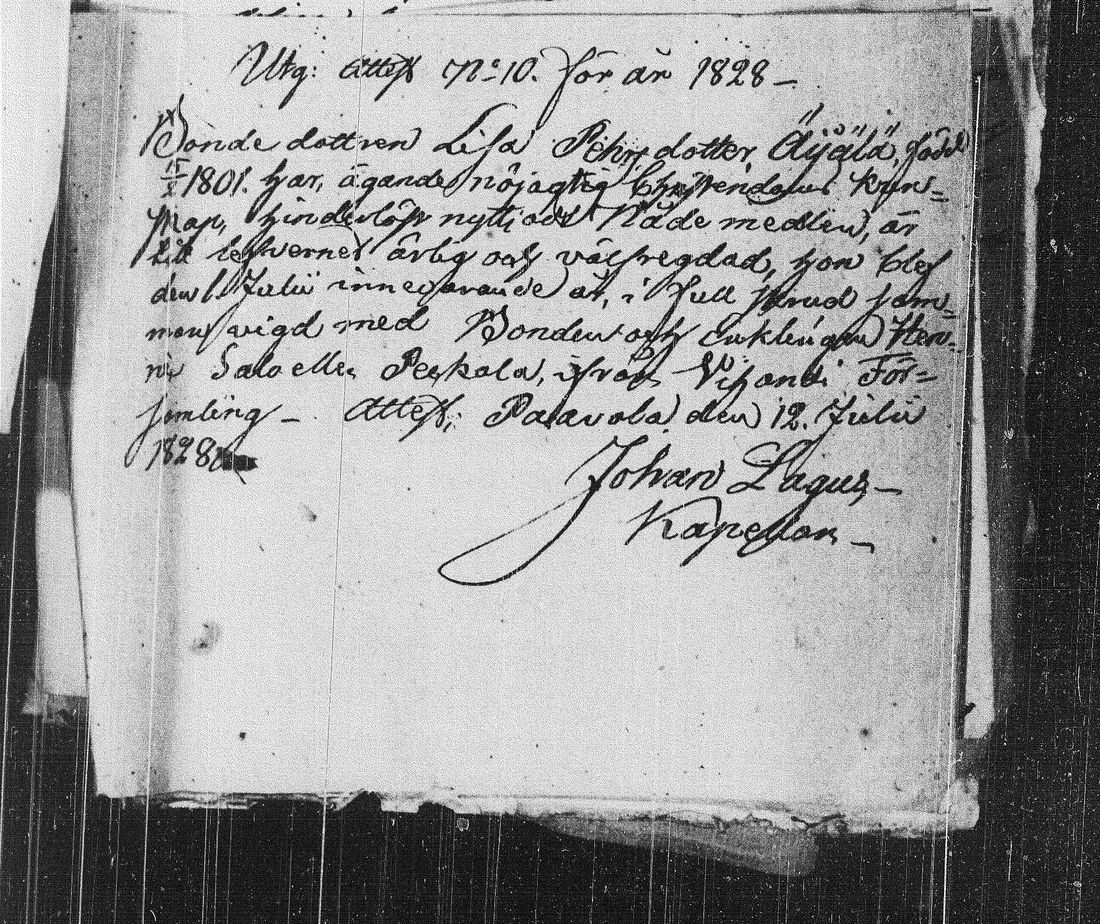 Utg: Attest No 10. för år 1828 –
Bonde dottren Lisa Pehrs dotter Äijälä, född
1801. har, ägande nöjagtig Christendoms kun-
skap, hinderlöst nyttjadt Nåde medlen, är
till lefvernet ärlig och välfregdad, hon blef
den 6 Julii innevarande år, i full skrud sam-
man vigd med Bonden och Enklingen Hen-
ric Salo eller Peskola, ifrån Vihanti För-
samling – Attest; Paavola den 12. Julii
1828
Johan Lagus –
Kapellan –